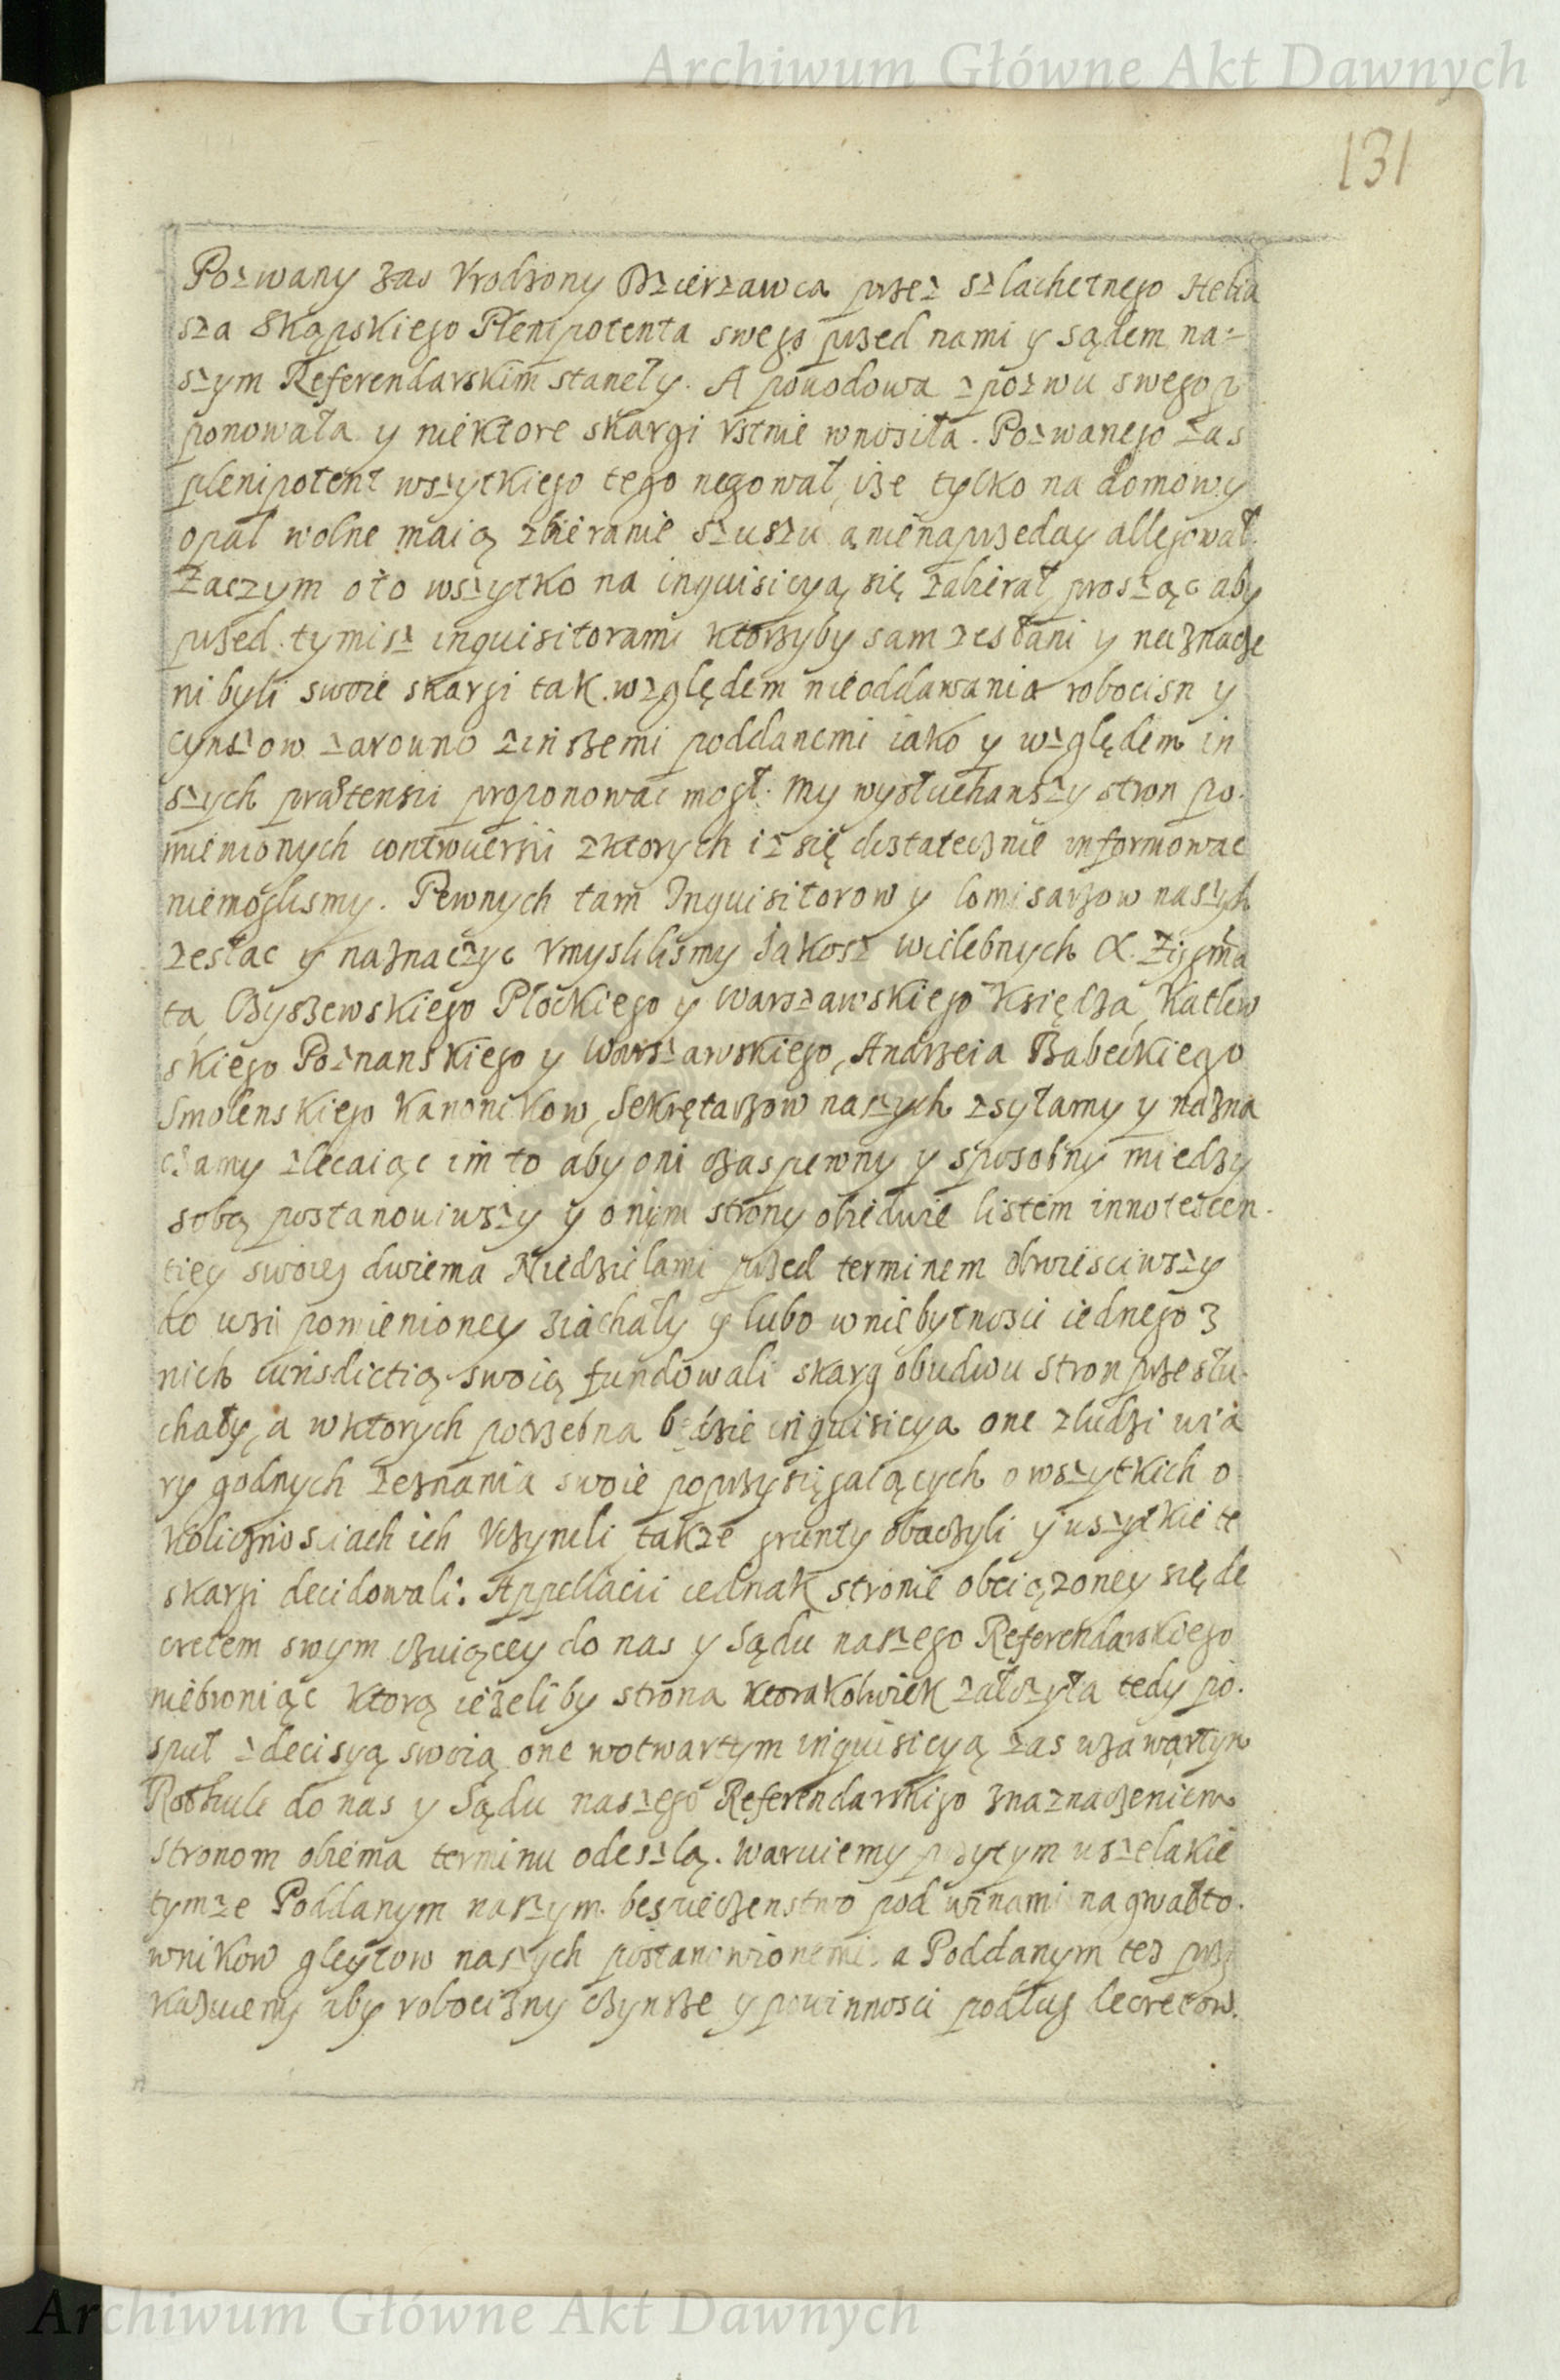 Archiwum Główne Akt Dawnych
131
Pozwany zas Vrodzony Dzierzawca przez szlachetnego Helia
sza Skąpskiego Plenipotenta swego przed nami y sądem na=
szym Referendarskim stanęły. A powodowa z pozwu swego p
ponowała y niektore skargi vstnie wnosiła. Pozwanego zas
plenipotent wszytkiego tego negował, ize tylko na domowy
opał wolne maią zbieranie szuszu a nienaprzeday allegował.
Zaczym oto wszytko na inquisicyą się zabierał, prosząc aby
przed tymisz inquisitorami ktorzyby sam zesłani y naznacze
ni byli swoie skargi tak względem nieoddawania robocisn y
cynszow zarowno zinszemi poddanemi iako y względem in
szych prætensii proponowac mogł. My wysłuchawszy stron po.
mienionych controuersii zktorych iz się dostatecznie informowac
niemoglismy. Pewnych tam Inquisitorow y Comisarzow naszych
zesłac y naznaczyc vmyslilismy Jakosz wielebnych X. Zigma
ta Czyszewskiego Płockiego y Warszawskiego Księdza Katlew
skiego Poznanskiego y Warszawskiego, Andrzeia Babeckiego
Smolenskiego Kanonikow, Sekretarzow naszych zsyłamy y nazna
czamy zlecaiąc im to aby oni czas pewny y sposobny miedzy
sobą postanowiwszy y onym strony obiedwie listem innotescen.
tiey swoiey dwiema Niedzielami przed terminem obwiesciwszy
do wsi pomienioney ziachaly y lubo wniebytnosci iednego z
nich iurisdictią swoią fundowali skarg obudwu stron przesłu.
chały, a wktorych potrzebna będzie inquisicya one zludzi wia
ry godnych zeznania swoie poprzysięgaiących o wszytkich o
kolicznosciach ich vczyneli, takze grunty obaczyli y wszytkie te
skargi decidowali. Appellacii iednak stronie obciązoney się de
cretem swym czuiącey do nas y Sądu naszego Referendarskiego
niebroniąc ktorą iezeliby strona ktorakolwiek załozyła tedy po.
społ z decisyą swoią one wotwartym inquisicyą zas wzawartym
Rothule do nas y Sądu naszego Referendarskiego znaznaczeniem
stronom obiema terminu odeszlą. Waruiemy przytym wszelakie
tymze Poddanym naszym. bespieczenstwo pod winami na gwałto.
wnikow gleytow naszych postanowionemi. a Poddanym tez prz
kazuiemy aby robocizny czynsze y powinnosci podług decretow.
Archiwum Główne Akt Dawnych